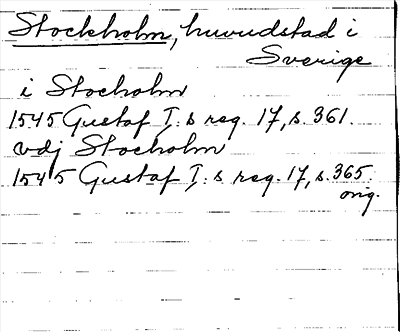 Stockholm, huvudstad i
Sverige
i Stocholm
1545 Gustaf I:s reg. 17, s. 361.
vdj Stocholm
1545 Gustaf I:s reg. 17, s. 365.
orig.